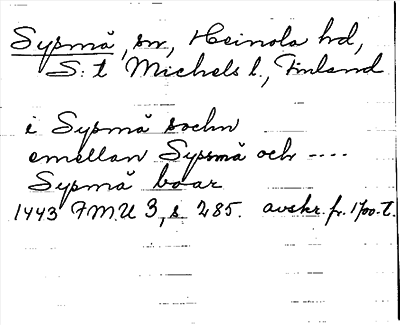 Sysmä, sn, Heinola hd,
S:t Michels l., Finland
i Sysmä sochn
emellan Syssmä och ----
Sysmä boar
1443 FMU 3, s 285. avskr. fr. 1700-t.